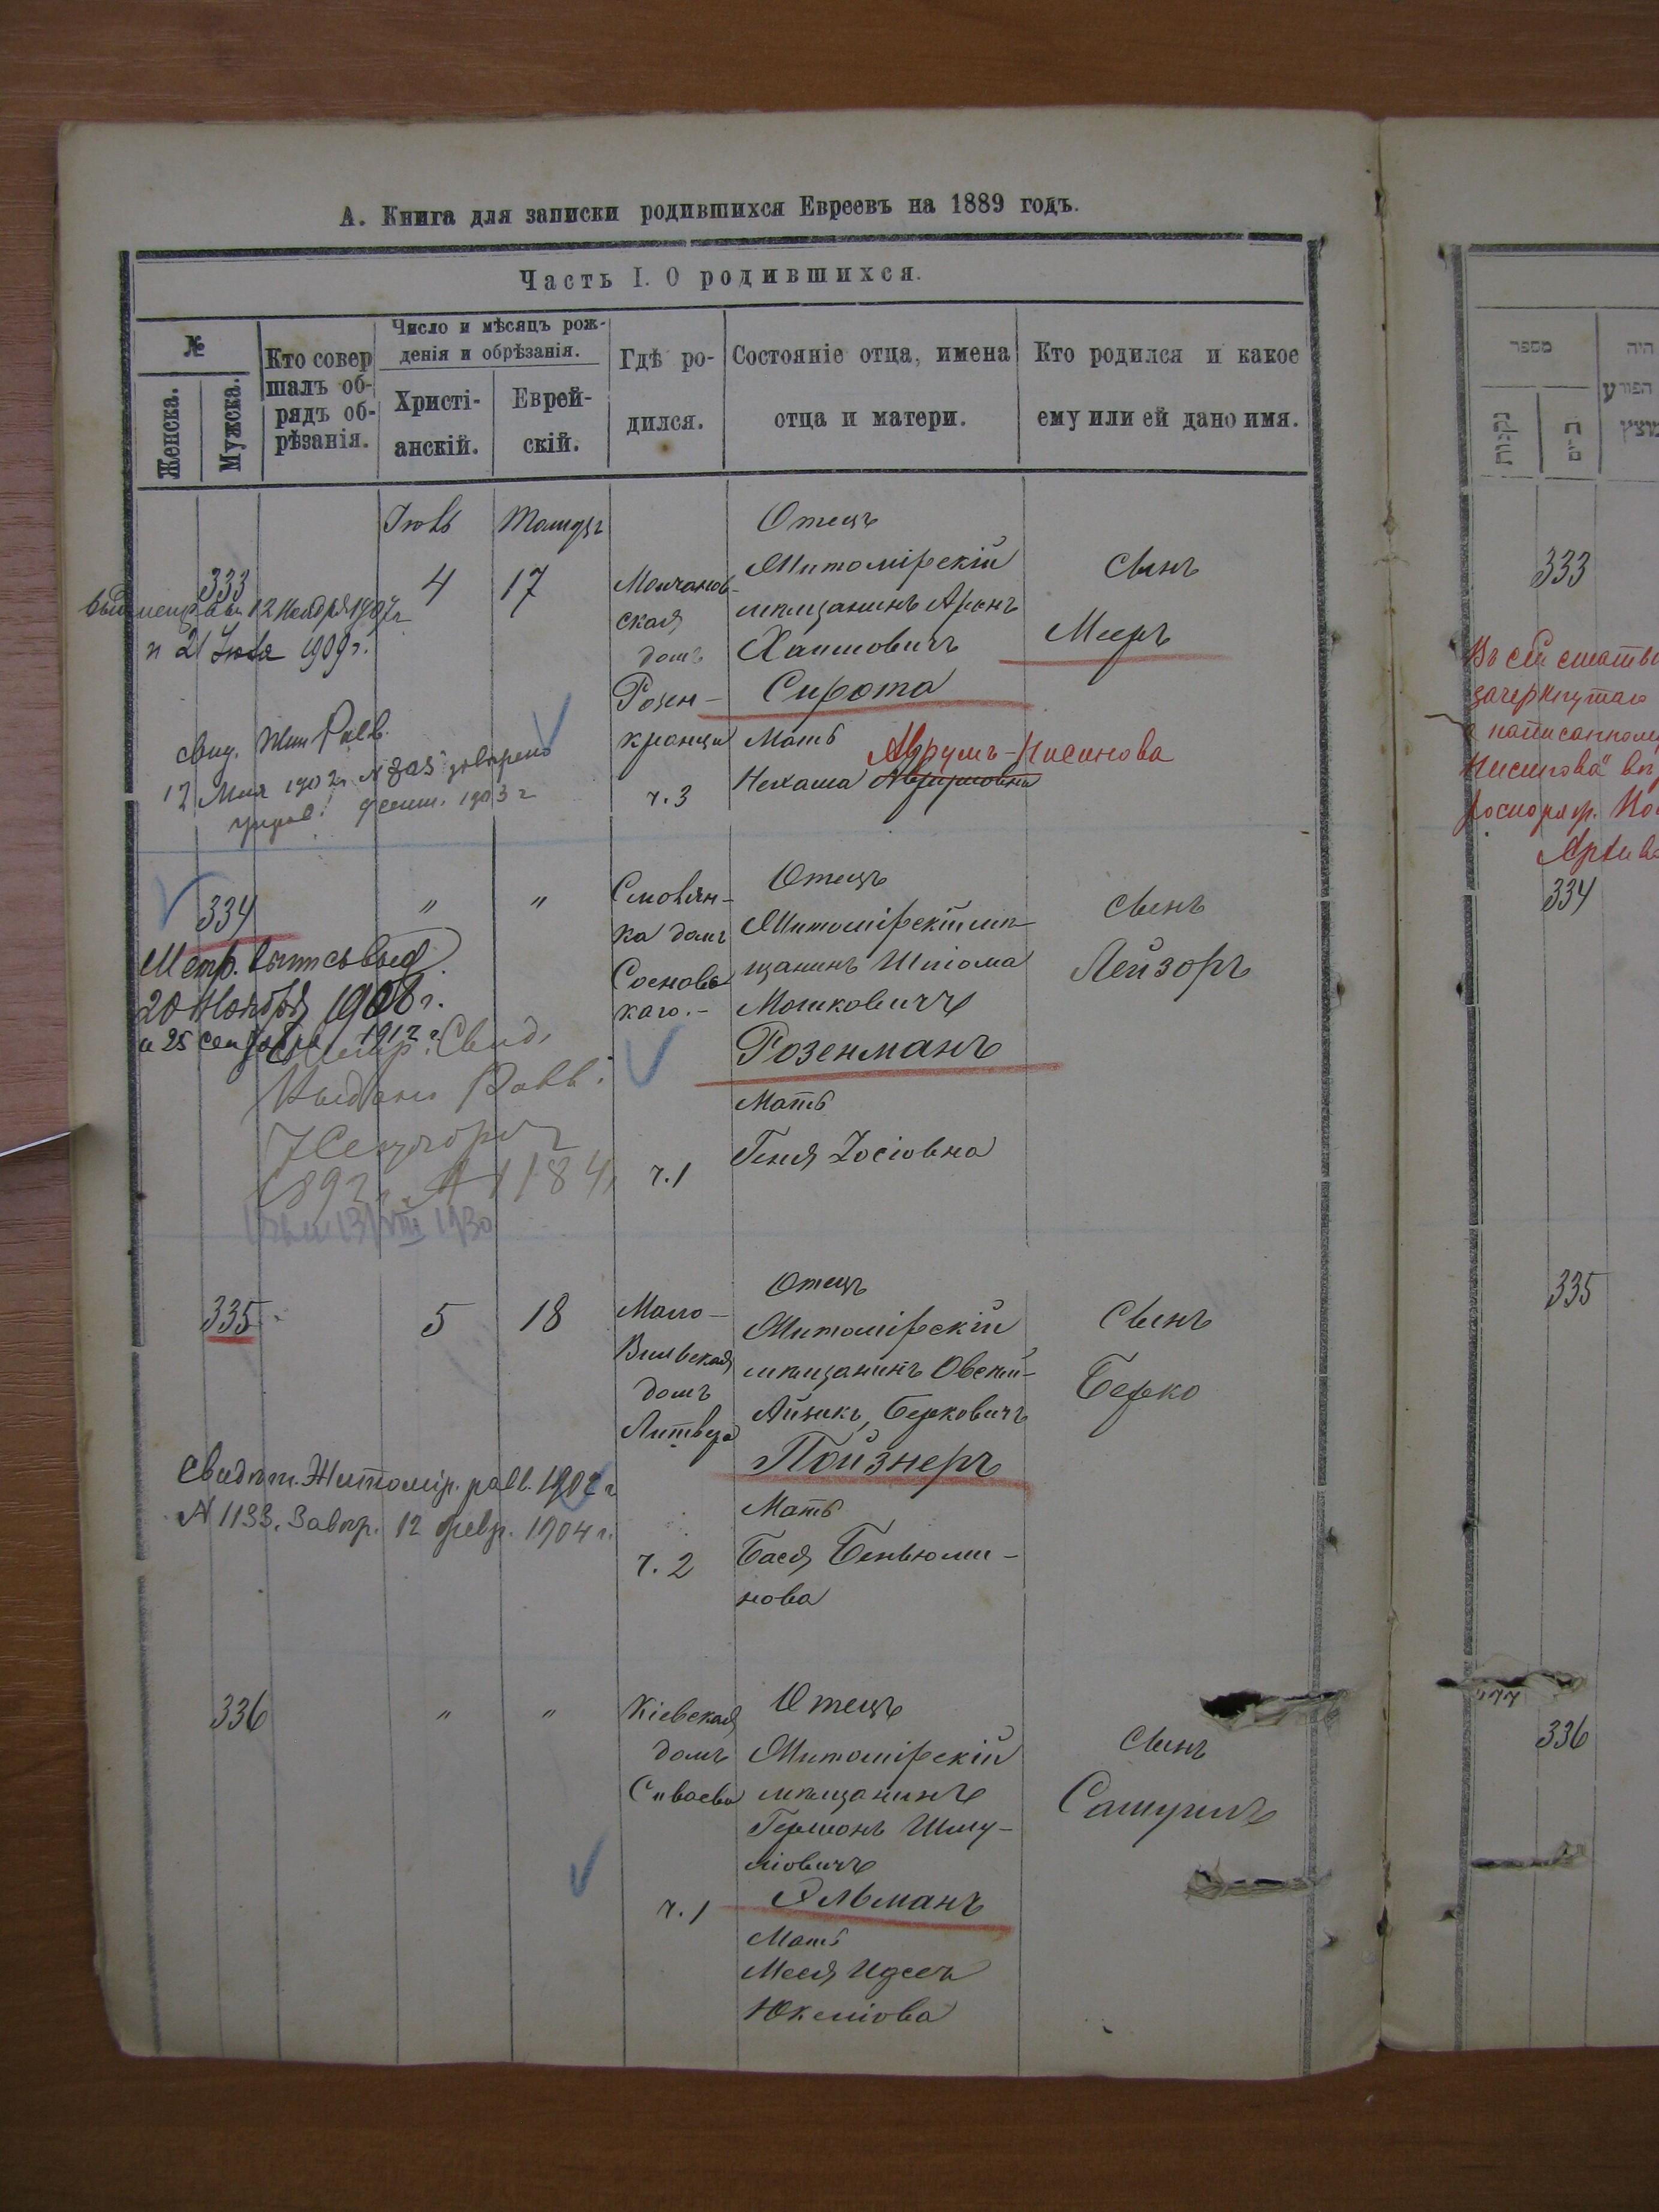 А. Книга для записки родившихся Евреевъ на 1889 годъ.
Часть I. О родившихся.
№
Женска.
Мужска.
Кто совер
шалъ об-
рядъ об-
рѣзанія.
Число и мѣсяцъ рож-
денія и обрѣзанія.
Христі-
анскій.
Еврей-
скій.
Гдѣ ро-
дился.
Состояніе отца, имена
отца и матери.
Кто родился и какое
ему или ей дано имя.
333
12 Ноября 1907 г
и 21 Іюля 1909 г.
свид. Жит Равв.
12 Мая 1902 г
1903 г
Іюль
4
Тамузъ
17
Молчанов-
ская
домъ
Розен-
кранца
ч. 3
Отецъ
Житомірскій
мѣщанинъ Аронъ
Хаимовичъ
Сирота
Мать
Аврумъ-Нисинова
Нехама Аврумовна
сынъ
Мееръ
334
Метр. выпись выд.
20 Ноября 1908 г.
и 25 сентября 1912 г
Метр. Свид.
Выдано Равв.
1892 г. № 1184
1930
"
"
Словян-
ка домъ
Сосновс
каго.-
ч. 1
Отецъ
Житомірскій мѣ-
щанинъ Шлома
Мошковичъ
Розенманъ
Мать
Геня Іосіовна
сынъ
Лейзоръ
335
Свидѣт. Житомір. равв. 1902 г
№ 1133. Завѣр. 12 февр. 1904 г.
5
18
Мало-
Вильская
домъ
Литвера
ч. 2
Отецъ
Житомірскій
мѣщанинъ Овсей-
Айзикъ Берковичъ
Пойзнеръ
Мать
Бася Беньюми-
нова
сынъ
Берко
336
"
"
Кіевская
домъ
Сиваева
ч. 1
Отецъ
Житомірскій
мѣщанинъ
Гершонъ Шму-
ліовичъ
Эльманъ
Мать
Мася Идесъ
Юкеліова
сынъ
Самуилъ
מספר
נקבות
זכרים
היה
הפורע
מוצץ
333
Въ сей статьѣ
зачеркнутаго
и написанному
Нисинова" вѣр
распоряж.
Архива
334
335
336